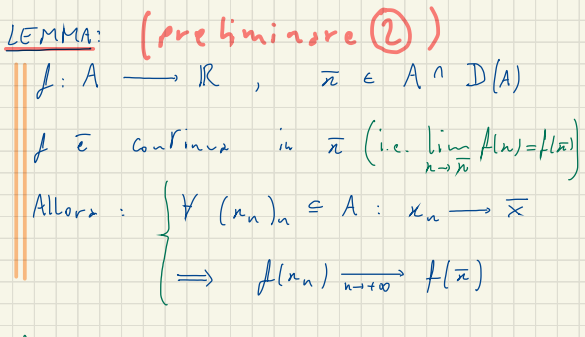 LEMMA: (preliminare ②)
f: A ⟶ ℝ , x̄ ∈ A ∩ D(A)
f è continua in x̄ (i.e. lim_{x→x̄} f(x) = f(x̄))
Allora : { ∀ (xₙ)ₙ ⊆ A : xₙ ⟶ x̄
⟹ f(xₙ) ⟶_{n→+∞} f(x̄)